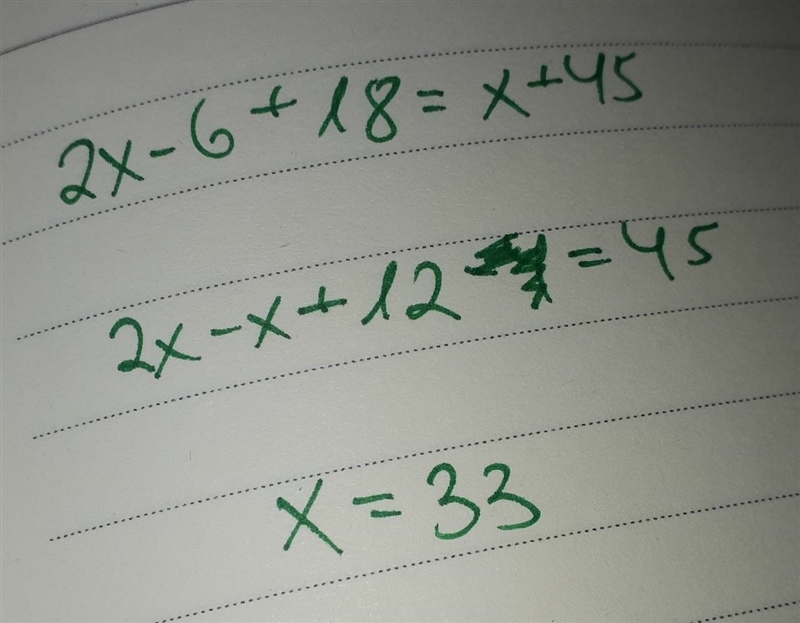 2x-6+18=x+45
2x-x+12=45
x=33